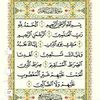 بِسْمِ اللَّهِ الرَّحْمَٰنِ الرَّحِيمِ
الْحَمْدُ لِلَّهِ رَبِّ الْعَالَمِينَ الرَّحْمَٰنِ
الرَّحِيمِ مَالِكِ يَوْمِ الدِّينِ إِيَّاكَ
نَعْبُدُ وَإِيَّاكَ نَسْتَعِينُ اهْدِنَا الصِّرَاطَ
الْمُسْتَقِيمَ صِرَاطَ الَّذِينَ أَنْعَمْتَ
عَلَيْهِمْ غَيْرِ الْمَغْضُوبِ
عَلَيْهِمْ وَلَا الضَّالِّينَ